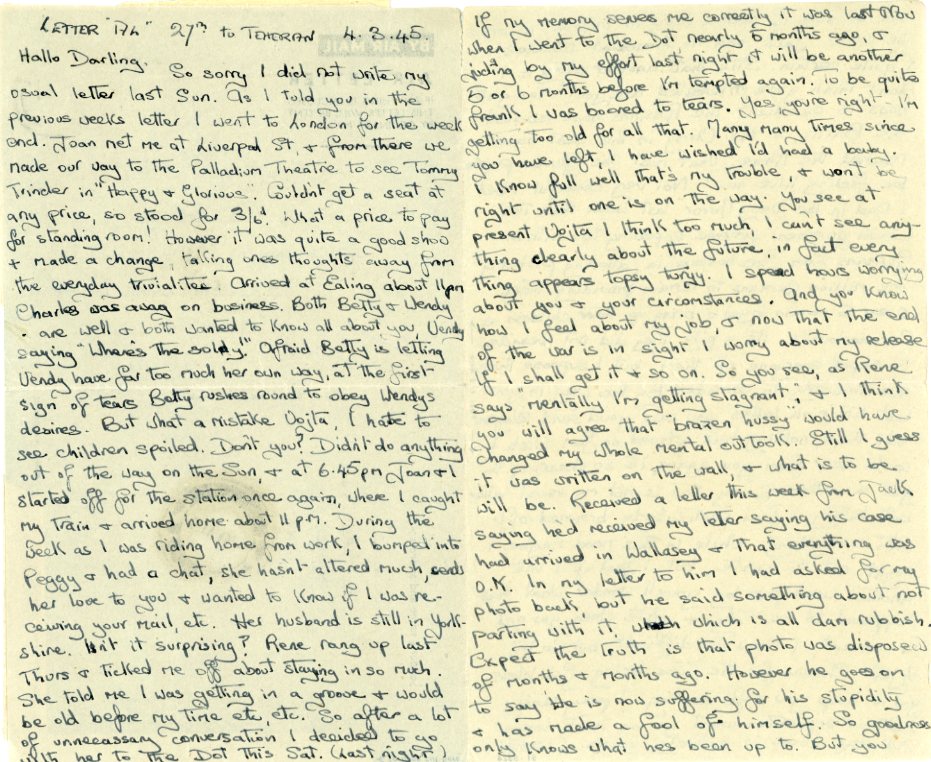 LETTER "174" 27TH to TEHERAN 4.3.45.
BY AIR MAIL
Hallo Darling.
So sorry I did not write my
usual letter last Sun. As I told you in the
previous weeks letter I went to London for the week
end. Joan met me at Liverpool St, & from there we
made our way to the Palladium Theatre to see Tommy
Trinder in "Happy & Glorious". Couldn't get a seat at
any price, so stood for 3/6d. What a price to pay
for standing room! However it was quite a good show
& made a change, talking ones thoughts away from
the everyday trivialities. Arrived at Ealing about 11pm
Charles was away on business. Both Betty & Wendy
are well & both wanted to know all about you, Wendy
saying "Where's the soldy!" Afraid Betty is letting
Wendy have far too much her own way, at the first
sign of tears Betty rushes round to obey Wendys
desires. But what a mistake Vojta, I hate to
see children spoiled. Don't you? Didn't do anything
out of the way on the Sun, & at 6.45pm Joan & I
started off for the station once again, where I caught
my train & arrived home about 11 p.m. During the
week as I was riding home from work, I bumped into
Peggy & had a chat, she hasn't altered much, sends
her love to you & wanted to know if I was re-
ceiving your mail, etc. Her husband is still in York-
shire. Isn't it surprising? Rene rang up last
Thurs & ticked me off about staying in so much.
She told me I was getting in a groove & would
be old before my time etc, etc. So after a lot
of unnecassary conversation I decided to go
with her to the Dot this Sat. (last night)
If my memory serves me correctly it was last Nov
when I went to the Dot nearly 5 months ago, &
judging by my effort last night it will be another
5 or 6 months before I'm tempted again. To be quite
frank I was boared to tears. Yes you're right - I'm
getting too old for all that. Many many times since
you have left, I have wished I'd had a baby.
I know full well that's my trouble, & won't be
right until one is on the way. You see at
present Vojta I think too much, I can't see any-
thing clearly about the future, in fact every
thing appears topsy turvy. I spend hours worrying
about you & your circumstances. And you know
how I feel about my job, & now that the end
of the war is in sight I worry about my release
If I shall get it & so on. So you see, as Rene
says "mentally I'm getting stagnant", & I think
you will agree that "brazen hussy" would have
changed my whole mental outlook. Still I guess
it was written on the wall, & what is to be
will be. Received a letter this week from Jack
saying he'd received my letter saying his case
had arrived in Wallasey & that everything was
O.K. In my letter to him I had asked for my
photo back, but he said something about not
parting with it, which is all dam rubbish.
Expect the truth is that photo was disposed
of months & months ago. However he goes on
to say "He is now suffering for his stupidity
& has made a fool of himself. So goodness
only knows what hes been up to. But you